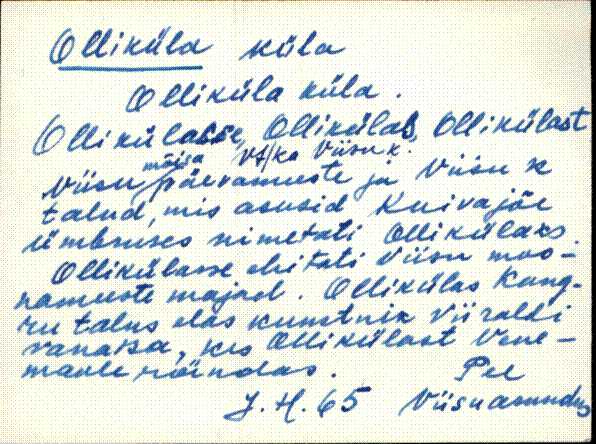 Olliküla küla
Olliküla küla.
Ollikülasse, Ollikülas, Ollikülast
vt/ka Viisu k.
Viisu mõisa päevameeste ja Viisu k
talud, mis asusid Kuivajõe
ümbruses nimetati Ollikülaks.
Ollikülasse ehitati Viisu moo-
nameeste majad. Ollikülas Kang-
ru talus elas kunstnik Viiraldi
vanaisa, kes Ollikülast Vene-
maale rändas.
Pee
J. H. 65 Viisu asundus